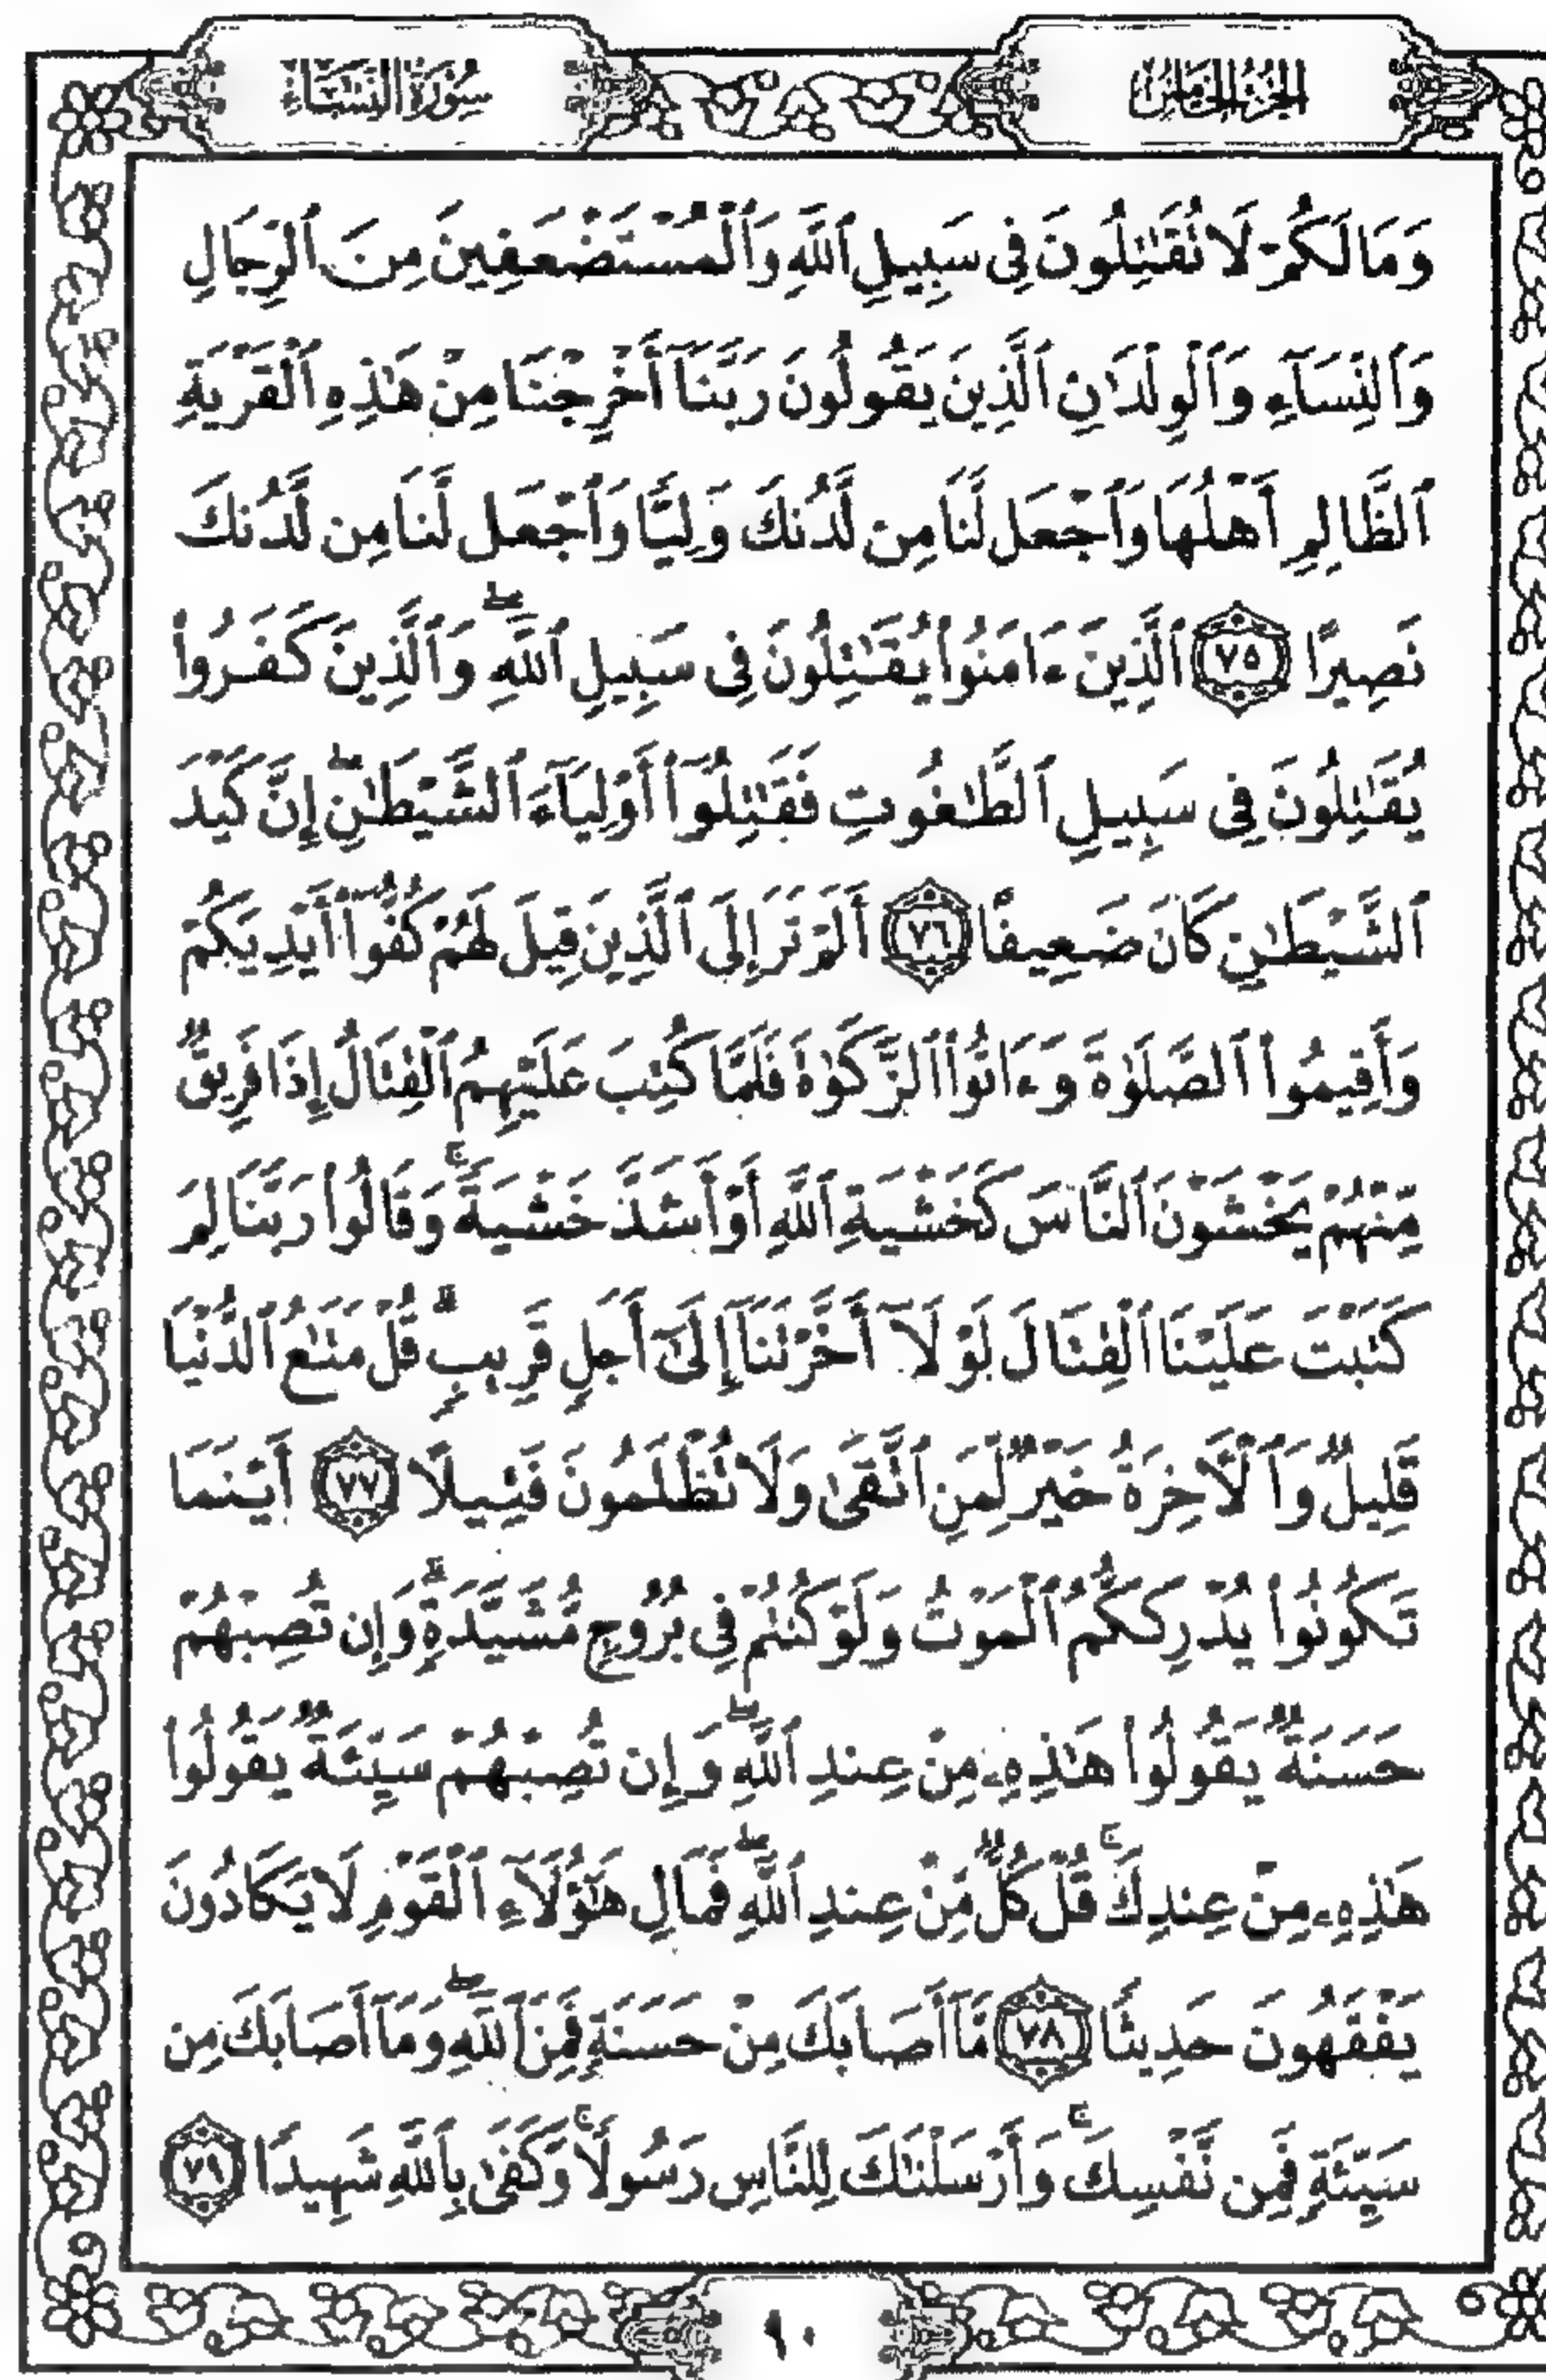 الجزء الخامس
سورة النساء
وَمَا لَكُمْ لَا تُقَٰتِلُونَ فِى سَبِيلِ ٱللَّهِ وَٱلْمُسْتَضْعَفِينَ مِنَ ٱلرِّجَالِ
وَٱلنِّسَآءِ وَٱلْوِلْدَٰنِ ٱلَّذِينَ يَقُولُونَ رَبَّنَآ أَخْرِجْنَا مِنْ هَٰذِهِ ٱلْقَرْيَةِ
ٱلظَّالِمِ أَهْلُهَا وَٱجْعَل لَّنَا مِن لَّدُنكَ وَلِيًّا وَٱجْعَل لَّنَا مِن لَّدُنكَ
نَصِيرًا ٧٥ ٱلَّذِينَ ءَامَنُوا۟ يُقَٰتِلُونَ فِى سَبِيلِ ٱللَّهِ ۖ وَٱلَّذِينَ كَفَرُوا۟
يُقَٰتِلُونَ فِى سَبِيلِ ٱلطَّٰغُوتِ فَقَٰتِلُوٓا۟ أَوْلِيَآءَ ٱلشَّيْطَٰنِ ۖ إِنَّ كَيْدَ
ٱلشَّيْطَٰنِ كَانَ ضَعِيفًا ٧٦ أَلَمْ تَرَ إِلَى ٱلَّذِينَ قِيلَ لَهُمْ كُفُّوٓا۟ أَيْدِيَكُمْ
وَأَقِيمُوا۟ ٱلصَّلَوٰةَ وَءَاتُوا۟ ٱلزَّكَوٰةَ فَلَمَّا كُتِبَ عَلَيْهِمُ ٱلْقِتَالُ إِذَا فَرِيقٌ
مِّنْهُمْ يَخْشَوْنَ ٱلنَّاسَ كَخَشْيَةِ ٱللَّهِ أَوْ أَشَدَّ خَشْيَةً ۚ وَقَالُوا۟ رَبَّنَا لِمَ
كَتَبْتَ عَلَيْنَا ٱلْقِتَالَ لَوْلَآ أَخَّرْتَنَآ إِلَىٰٓ أَجَلٍ قَرِيبٍ ۗ قُلْ مَتَٰعُ ٱلدُّنْيَا
قَلِيلٌ وَٱلْـَٔاخِرَةُ خَيْرٌ لِّمَنِ ٱتَّقَىٰ وَلَا تُظْلَمُونَ فَتِيلًا ٧٧ أَيْنَمَا
تَكُونُوا۟ يُدْرِككُّمُ ٱلْمَوْتُ وَلَوْ كُنتُمْ فِى بُرُوجٍ مُّشَيَّدَةٍ ۗ وَإِن تُصِبْهُمْ
حَسَنَةٌ يَقُولُوا۟ هَٰذِهِۦ مِنْ عِندِ ٱللَّهِ ۖ وَإِن تُصِبْهُمْ سَيِّئَةٌ يَقُولُوا۟
هَٰذِهِۦ مِنْ عِندِكَ ۚ قُلْ كُلٌّ مِّنْ عِندِ ٱللَّهِ ۖ فَمَالِ هَٰٓؤُلَآءِ ٱلْقَوْمِ لَا يَكَادُونَ
يَفْقَهُونَ حَدِيثًا ٧٨ مَّآ أَصَابَكَ مِنْ حَسَنَةٍ فَمِنَ ٱللَّهِ ۖ وَمَآ أَصَابَكَ مِن
سَيِّئَةٍ فَمِن نَّفْسِكَ ۚ وَأَرْسَلْنَٰكَ لِلنَّاسِ رَسُولًا ۚ وَكَفَىٰ بِٱللَّهِ شَهِيدًا ٧٩
٩٠